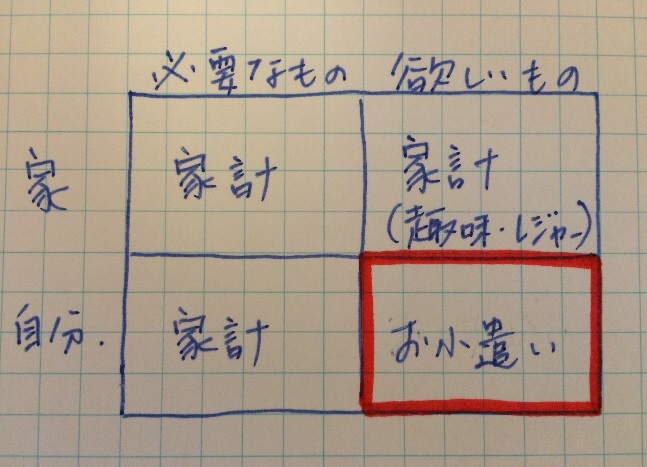 必要なもの 欲しいもの
家 家計 家計
(趣味・レジャー)
自分. 家計 お小遣い